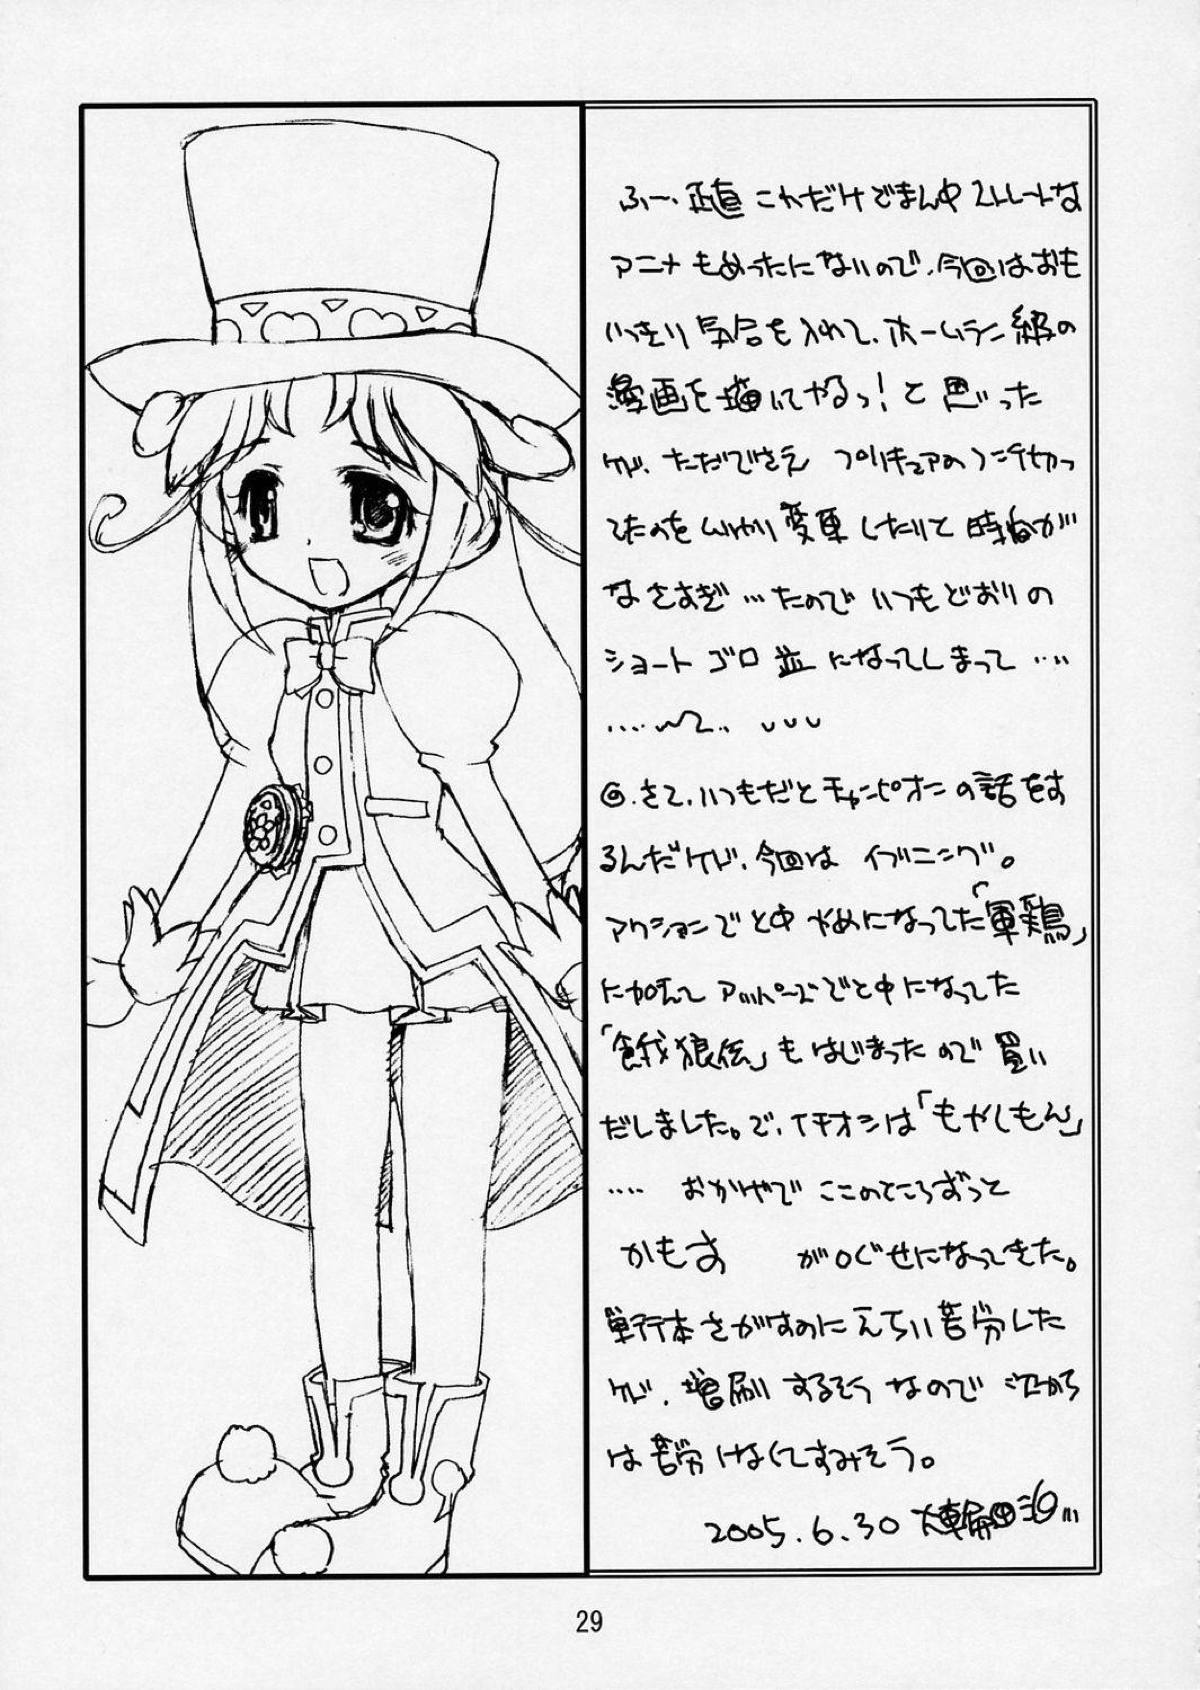 ふー、正直 これだけどまん中ストレートな
アニメもめったにないので、今回はおも
いっきり気合を入れて、ホームラン級の
漫画を描いてやるっ！と思った
けど、ただでさえ プリキュアの
てたのをムリヤリ変更したりして時間が
なさすぎ…たので いつもどおりの
ショートゴロ並になってしまって……
◎.さて、いつもだとチャンピオンの話をす
るんだけど、今回は イブニング。
アクションでと中やめになってた「軍鶏」
に加えて アッパーズでと中になってた
「餓狼伝」もはじまったので買い
だしました。で、イチオシは「もやしもん」
‥‥ おかげで ここのところずっと
かもす が口ぐせになってきた。
単行本さがすのにえらい苦労した
けど、増刷するそうなので 次から
は苦労はなくてすみそう。
2005.6.30 大輪田
29